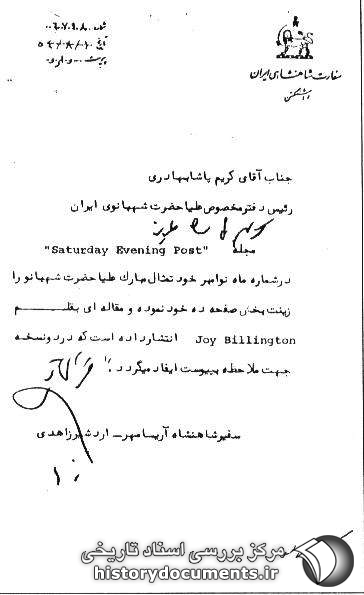 سفارت شاهنشاهی ایران
واشنگتن
جناب آقای کریم پاشابهادری
رئیس دفترمخصوص علیاحضرت شهبانوی ایران
مجله "Saturday Evening Post"
درشماره ماه نوامبر خود تمثال مبارك علیاحضرت شهبانو را
زینت بخش صفحه ده خود نموده و مقاله ای بقلـــم
Joy Billington انتشارداده است که دردونسخه
جهت ملاحظه بپیوست ایفاد میگردد.
سفیرشاهنشاه آریامهرـ اردشیرزاهدی
مرکز بررسی اسناد تاریخی
historydocuments.ir